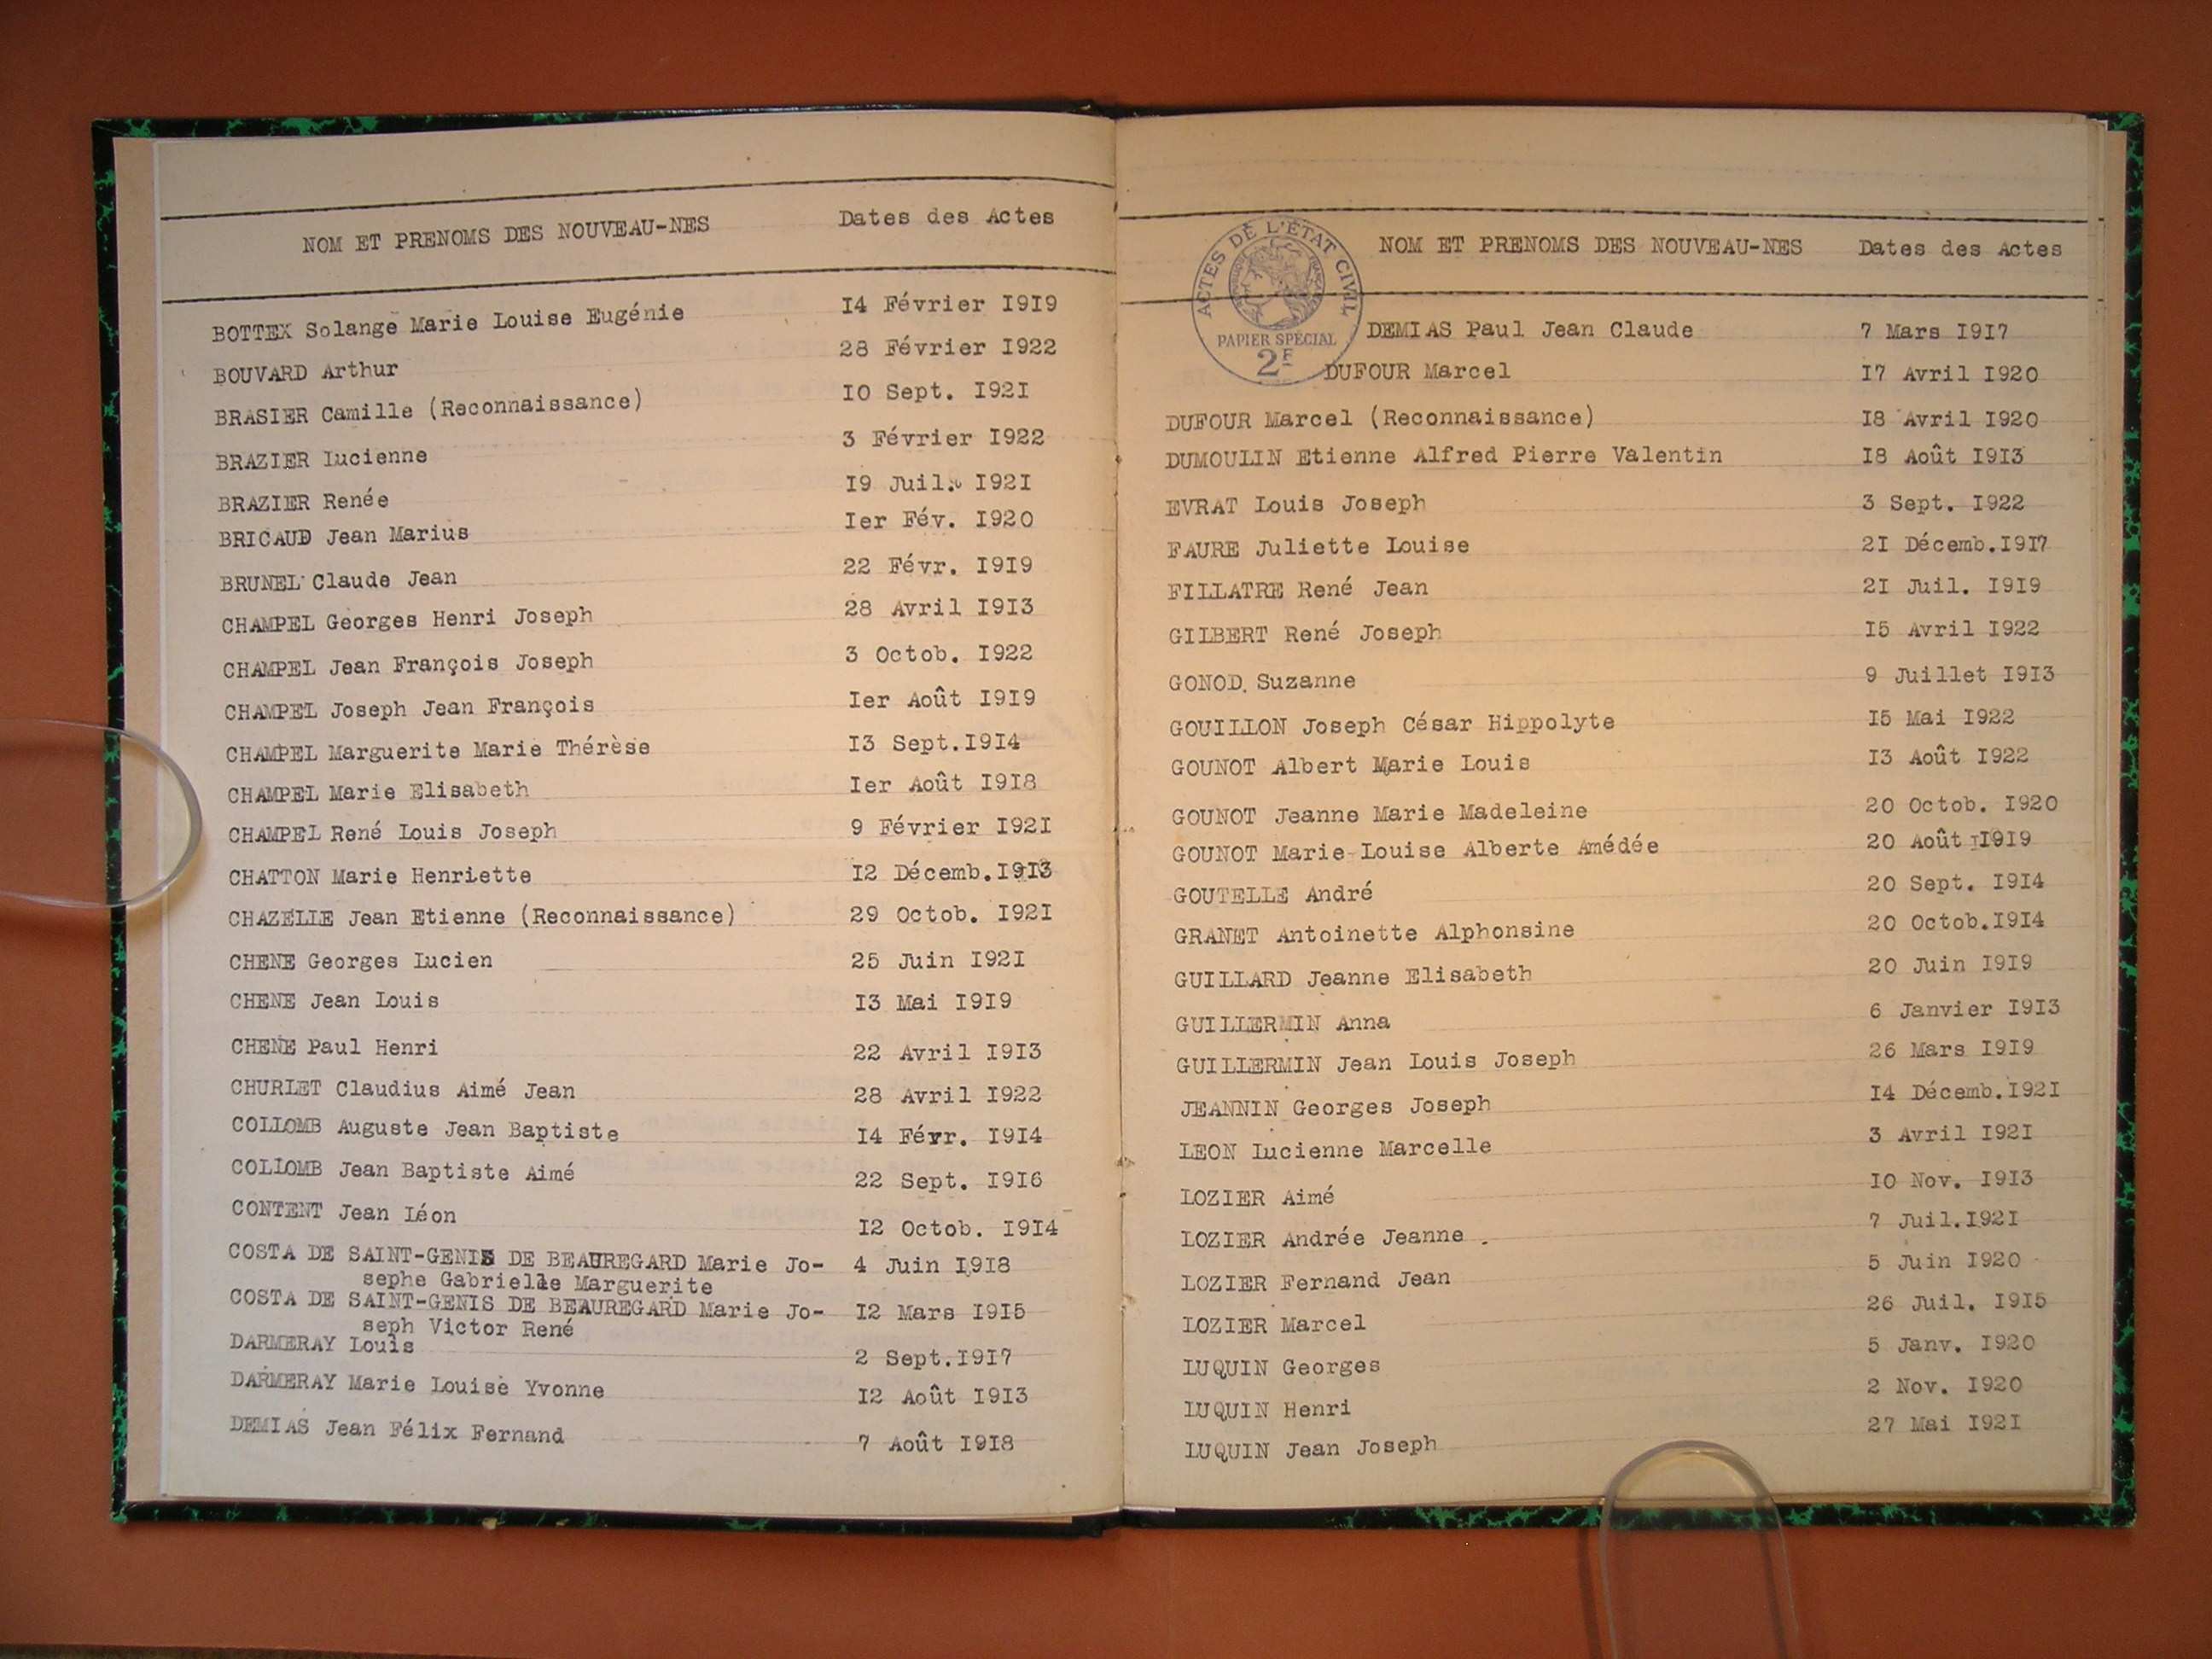 NOM ET PRENOMS DES NOUVEAU-NES Dates des Actes
BOTTEX Solange Marie Louise Eugénie 14 Février 1919
BOUVARD Arthur 28 Février 1922
BRASIER Camille (Reconnaissance) 10 Sept. 1921
BRAZIER Lucienne 3 Février 1922
BRAZIER Renée 19 Juil. 1921
BRICAUD Jean Marius Ier Fév. 1920
BRUNEL Claude Jean 22 Févr. 1919
CHAMPEL Georges Henri Joseph 28 Avril 1913
CHAMPEL Jean François Joseph 3 Octob. 1922
CHAMPEL Joseph Jean François Ier Août 1919
CHAMPEL Marguerite Marie Thérèse 13 Sept.1914
CHAMPEL Marie Elisabeth Ier Août 1918
CHAMPEL René Louis Joseph 9 Février 1921
CHATTON Marie Henriette 12 Décemb.1913
CHAZELLE Jean Etienne (Reconnaissance) 29 Octob. 1921
CHENE Georges Lucien 25 Juin 1921
CHENE Jean Louis 13 Mai 1919
CHENE Paul Henri 22 Avril 1913
CHURLET Claudius Aimé Jean 28 Avril 1922
COLLOMB Auguste Jean Baptiste 14 Févr. 1914
COLLOMB Jean Baptiste Aimé 22 Sept. 1916
CONTENT Jean Léon 12 Octob. 1914
COSTA DE SAINT-GENIS DE BEAUREGARD Marie Jo- 4 Juin 1918
sephe Gabrielle Marguerite
COSTA DE SAINT-GENIS DE BEAUREGARD Marie Jo- 12 Mars 1915
seph Victor René
DARMERAY Louis 2 Sept.1917
DARMERAY Marie Louise Yvonne 12 Août 1913
DEMIAS Jean Félix Fernand 7 Août 1918
ACTES DE L'ÉTAT CIVIL
PAPIER SPÉCIAL
2F
NOM ET PRENOMS DES NOUVEAU-NES Dates des Actes
DEMIAS Paul Jean Claude 7 Mars 1917
DUFOUR Marcel 17 Avril 1920
DUFOUR Marcel (Reconnaissance) 18 Avril 1920
DUMOULIN Etienne Alfred Pierre Valentin 18 Août 1913
EVRAT Louis Joseph 3 Sept. 1922
FAURE Juliette Louise 21 Décemb.1917
FILLATRE René Jean 21 Juil. 1919
GILBERT René Joseph 15 Avril 1922
GONOD. Suzanne 9 Juillet 1913
GOUILLON Joseph César Hippolyte 15 Mai 1922
GOUNOT Albert Marie Louis 13 Août 1922
GOUNOT Jeanne Marie Madeleine 20 Octob. 1920
GOUNOT Marie-Louise Alberte Amédée 20 Août 1919
GOUTELLE André 20 Sept. 1914
GRANET Antoinette Alphonsine 20 Octob.1914
GUILLARD Jeanne Elisabeth 20 Juin 1919
GUILLERMIN Anna 6 Janvier 1913
GUILLERMIN Jean Louis Joseph 26 Mars 1919
JEANNIN Georges Joseph 14 Décemb.1921
LEON Lucienne Marcelle 3 Avril 1921
LOZIER Aimé 10 Nov. 1913
LOZIER Andrée Jeanne 7 Juil.1921
LOZIER Fernand Jean 5 Juin 1920
LOZIER Marcel 26 Juil. 1915
LUQUIN Georges 5 Janv. 1920
LUQUIN Henri 2 Nov. 1920
LUQUIN Jean Joseph 27 Mai 1921